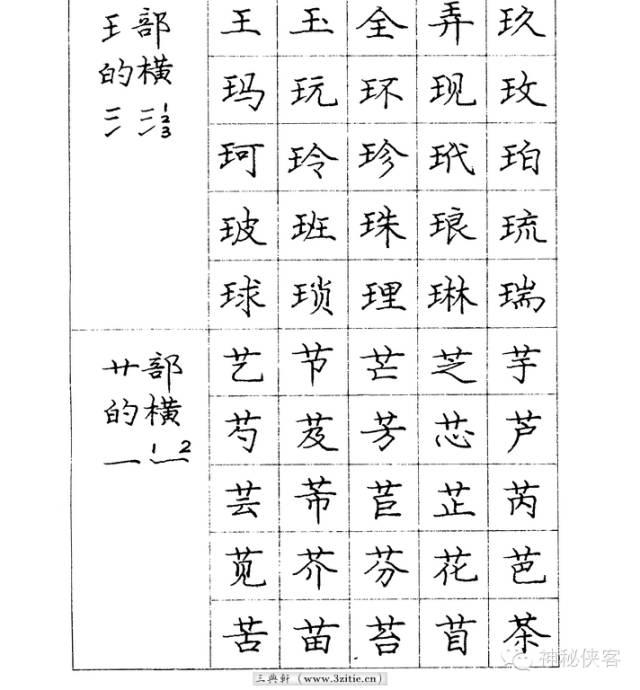 王部
的横
123
王玉全弄玖
玛玩环现玫
珂玲珍玳珀
玻班珠琅琉
球琐理琳瑞
艹部
的横
12
艺节芒芝芋
芍芨芳芯芦
芸芾苣芷芮
苋芥芬花芭
苦苗苔苜茶
神秘侠客
三典轩(www.3zitie.cn)